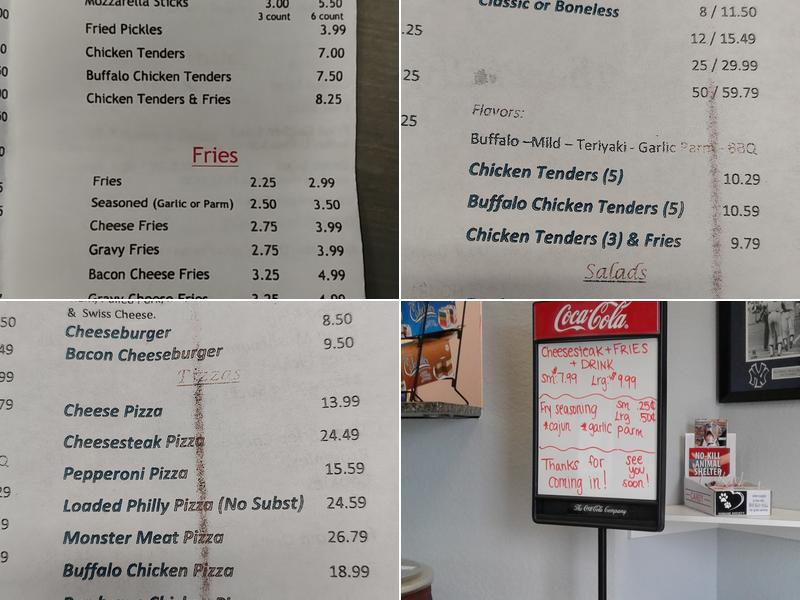 Mozzarella Sticks 3.00 5.50
3 count 6 count
Fried Pickles 3.99
Chicken Tenders 7.00
Buffalo Chicken Tenders 7.50
Chicken Tenders & Fries 8.25
Fries
Fries 2.25 2.99
Seasoned (Garlic or Parm) 2.50 3.50
Cheese Fries 2.75 3.99
Gravy Fries 2.75 3.99
Bacon Cheese Fries 3.25 4.99
Gravy Cheese Fries 3.25 4.99
Classic or Boneless 8 / 11.50
.25 12 / 15.49
25 25 / 29.99
50 / 59.79
25 Flavors:
Buffalo –Mild – Teriyaki - Garlic Parm - BBQ
Chicken Tenders (5) 10.29
Buffalo Chicken Tenders (5) 10.59
Chicken Tenders (3) & Fries 9.79
Salads
& Swiss Cheese.
50 Cheeseburger 8.50
49 Bacon Cheeseburger 9.50
99 Pizzas
79 Cheese Pizza 13.99
Cheesesteak Pizza 24.49
Q Pepperoni Pizza 15.59
29 Loaded Philly Pizza (No Subst) 24.59
9 Monster Meat Pizza 26.79
9 Buffalo Chicken Pizza 18.99
Coca-Cola
Cheesesteak + FRIES
+ DRINK
Sm: $7.99 Lrg: $9.99
Fry seasoning Sm .25¢
Lrg 50¢
*cajun *garlic parm
Thanks for
coming in!
see
you
soon!
The Coca-Cola Company
NO-KILL
ANIMAL
SHELTER